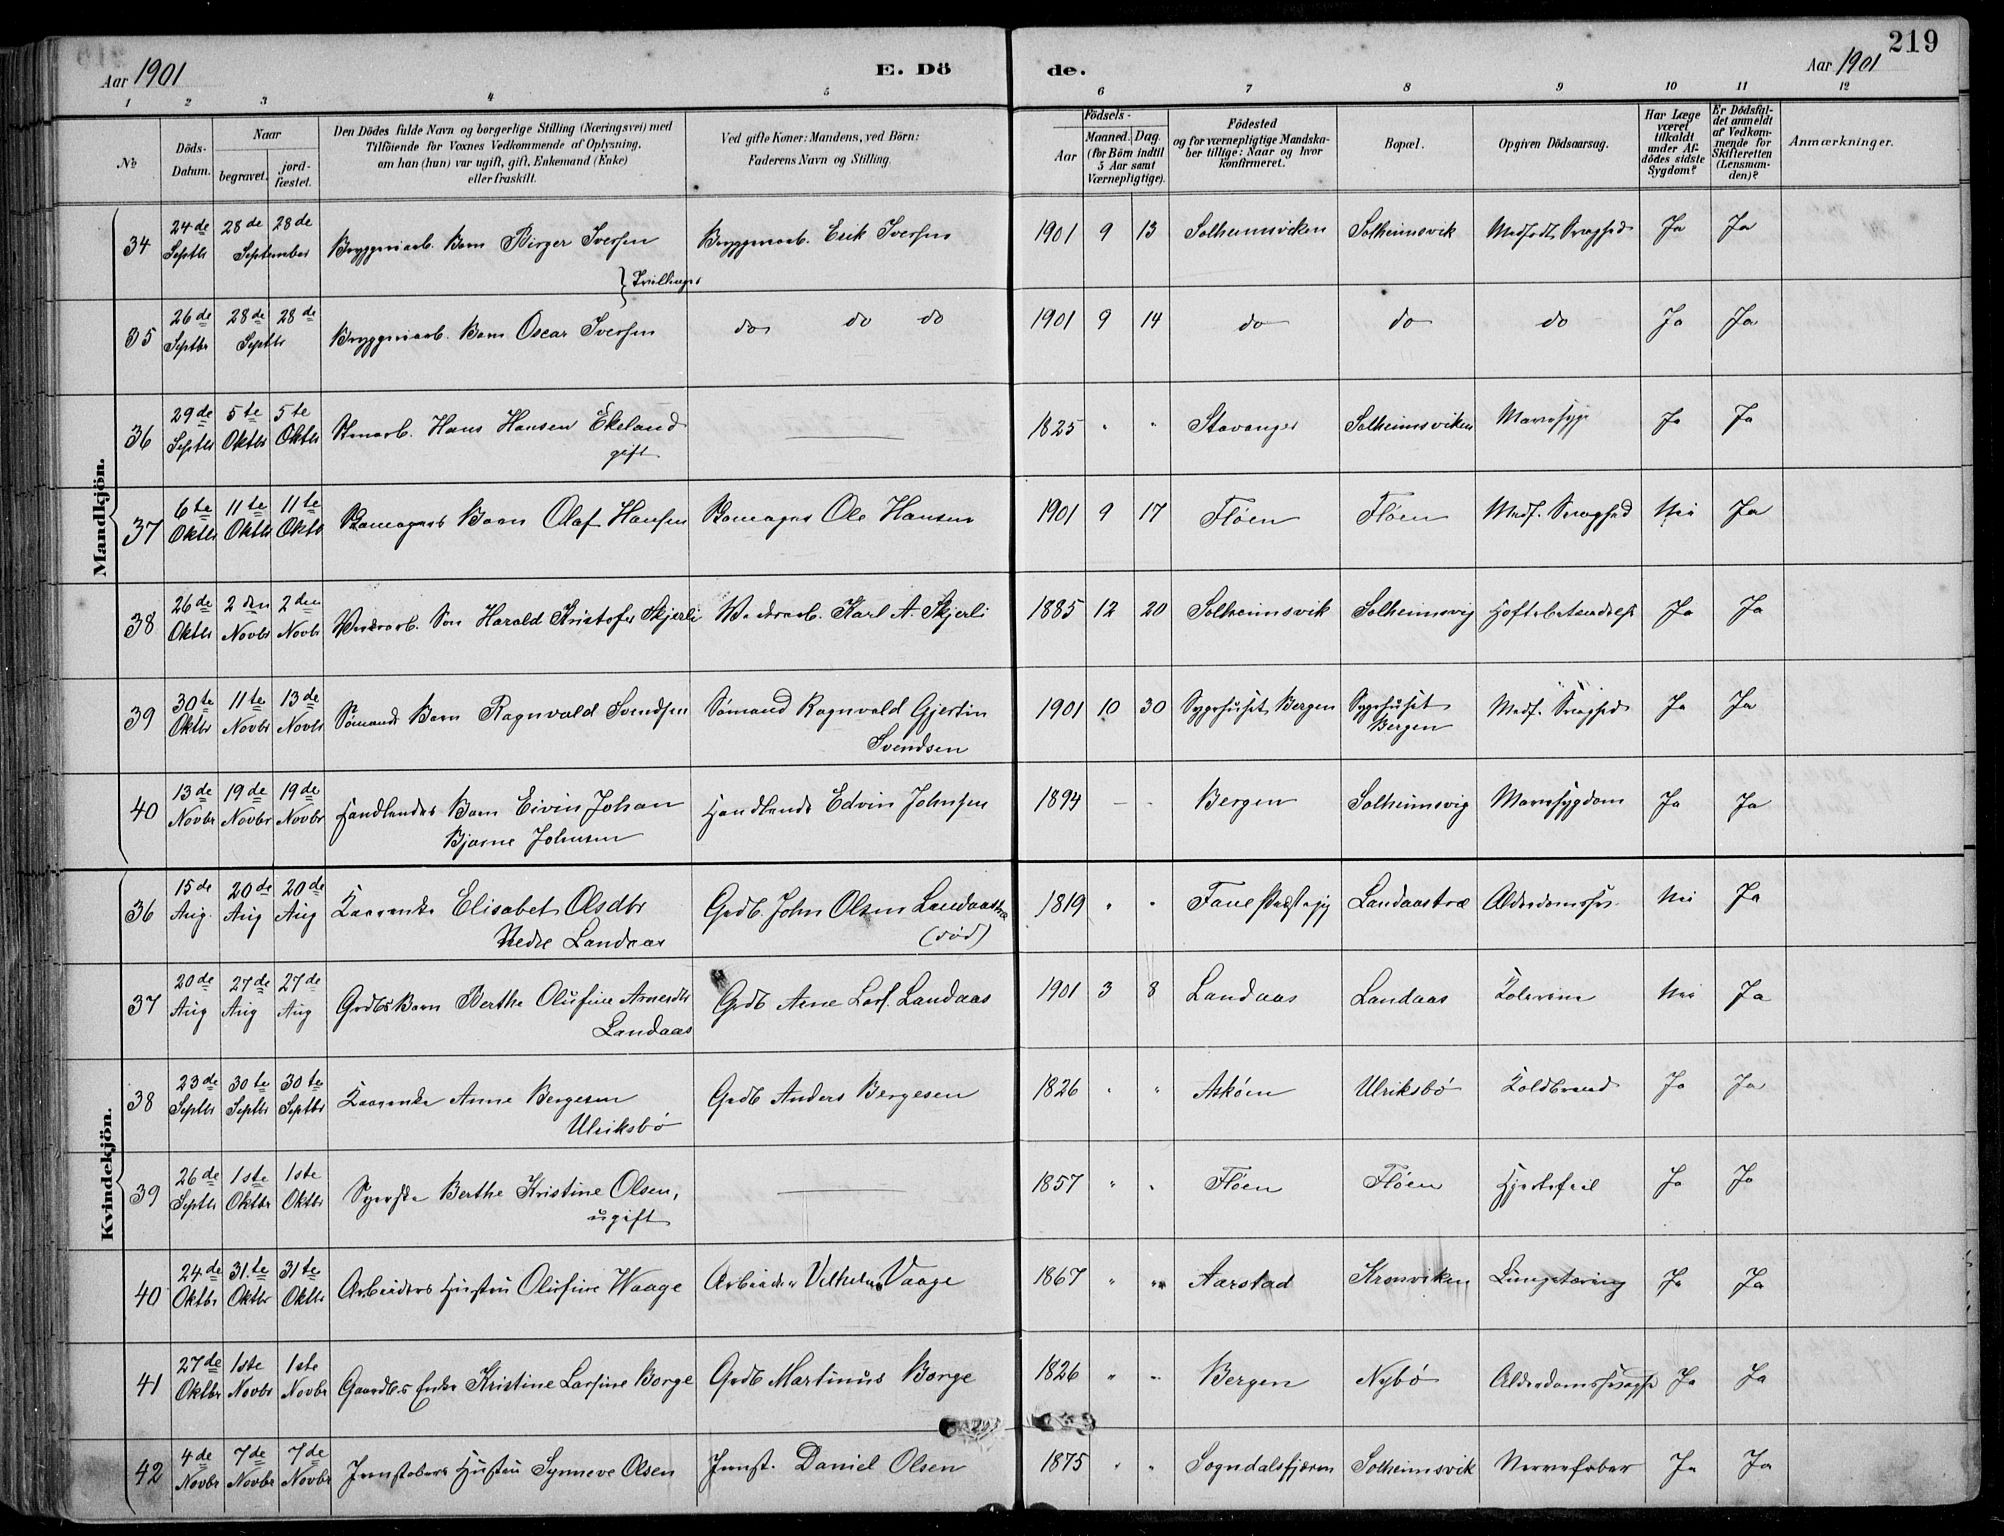 219
Aar 1901
E. Dö
de.
Aar 1901
1 2 3 4 5 6 7 8 9 10 11 12
№
Döds-Datum.
Naar
begravet.
jord-fæstet.
Den Dödes fulde Navn og borgerlige Stilling (Næringsvei) med
Tilföiende for Voxnes Vedkommende af Oplysning,
om han (hun) var ugift, gift, Enkemand (Enke)
eller fraskilt.
Ved gifte Koner: Mandens, ved Börn:
Faderens Navn og Stilling.
Födsels-
Aar
Maaned. Dag.
(for Börn indtil
5 Aar samt
Værnepligtige).
Födested
og for værnepligtige Mandska-
ber tillige: Naar og hvor
konfirmeret.
Bopæl.
Opgiven Dödsaarsag.
Har Læge
været
tilkaldt
under Af-
dödes sidste
Sygdom?
Er Dödsfal-
det anmeldt
af Vedkom-
mende for
Skifteretten
(Lensman-
den)?
Anmærkninger.
Mandkjön.
34 24de Septbr 28de 28de September Bryggeriarb. Barn Birger Iversen Bryggeriarb. Erik Iversen 1901 9 13 Solheimsviken Solheimsvik Medfødt Svaghed Ja Ja
} Tvillinger
35 26de Septbr 28de 28de Septbr Bryggeriarb. Barn Oscar Iversen do do do 1901 9 14 do do do Ja Ja
36 29de Septbr 5te Oktbr 5te Oktbr Hans Hansen Ekeland 1825 " " Stavanger Solheimsviken Mavesyge Ja Ja
gift
37 6te Oktbr 11te Oktbr 11te Oktbr Barn Olaf Hansen Ole Hansen 1901 9 17 Fløen Fløen Medf. Svaghed Nei Ja
38 26de Oktbr 2den Novbr 2den Novbr Værkarb. Søn Harald Kristofer Skjerli Værkarb. Karl A. Skjerli 1885 12 20 Solheimsvik Solheimsvig Hoftebetændelse Ja Ja
39 30te Oktbr 11te Novbr 13de Novbr Sømands Barn Ragnvald Svendsen Sømand Ragnvald Gjertin Svendsen 1901 10 30 Sygehuset Bergen Sygehuset Bergen Medf. Svaghed Ja Ja
40 13de Novbr 19de Novbr 19de Novbr Handlendes Barn Eivin Johan Bjarne Johnsen Handlende Edvin Johnsen 1894 – - Bergen Solheimsvig Mavesygdom Ja Ja
Kvindekjön.
36 15de Aug. 20de Aug 20de Aug Kaarenke Elisabet Olsdtr Nedre Landaas Grdb. John Olsen Landaastræ (død) 1819 " " Fane Præstegj Landaastræ Alderdomssv. Nei Ja
37 20de Aug 27de Aug 27de Aug Grdbs Barn Berthe Olufine Arnesdtr Landaas Grdb Arne Lars. Landaas 1901 3 8 Landaas Landaas Kolerine Nei Ja
38 23de Septbr 30te Septbr 30te Septbr Kaarenke Anne Bergesen Ulriksbø Grdb Anders Bergesen 1826 " " Askøen Ulriksbø Koldbrand Ja Ja
39 26de Septbr 1ste Oktbr 1ste Oktbr Syerske Berthe Kristine Olsen, ugift 1857 " " Fløen Fløen Hjertefeil Ja Ja
40 24de Oktbr 31.te Oktbr 31te Oktbr Arbeiders Hustru Olufine Waage Arbeider Vilhelm Vaage 1867 " " Aarstad Kronviken Lungetæring Ja Ja
41 27de Oktbr 1ste Novbr 1ste Novbr Gaardbs Enke Kristine Larsine Borge Grdb Martinus Borge 1826 " " Bergen Nybø Alderdomssvaghed Ja Ja
42 4de Novbr 7de Novbr 7de Novbr Jernstøbers Hustru Synneve Olsen Jernst. Daniel Olsen 1875 " " Sogndalsfjæren Solheimsvik Nervefeber Ja Ja